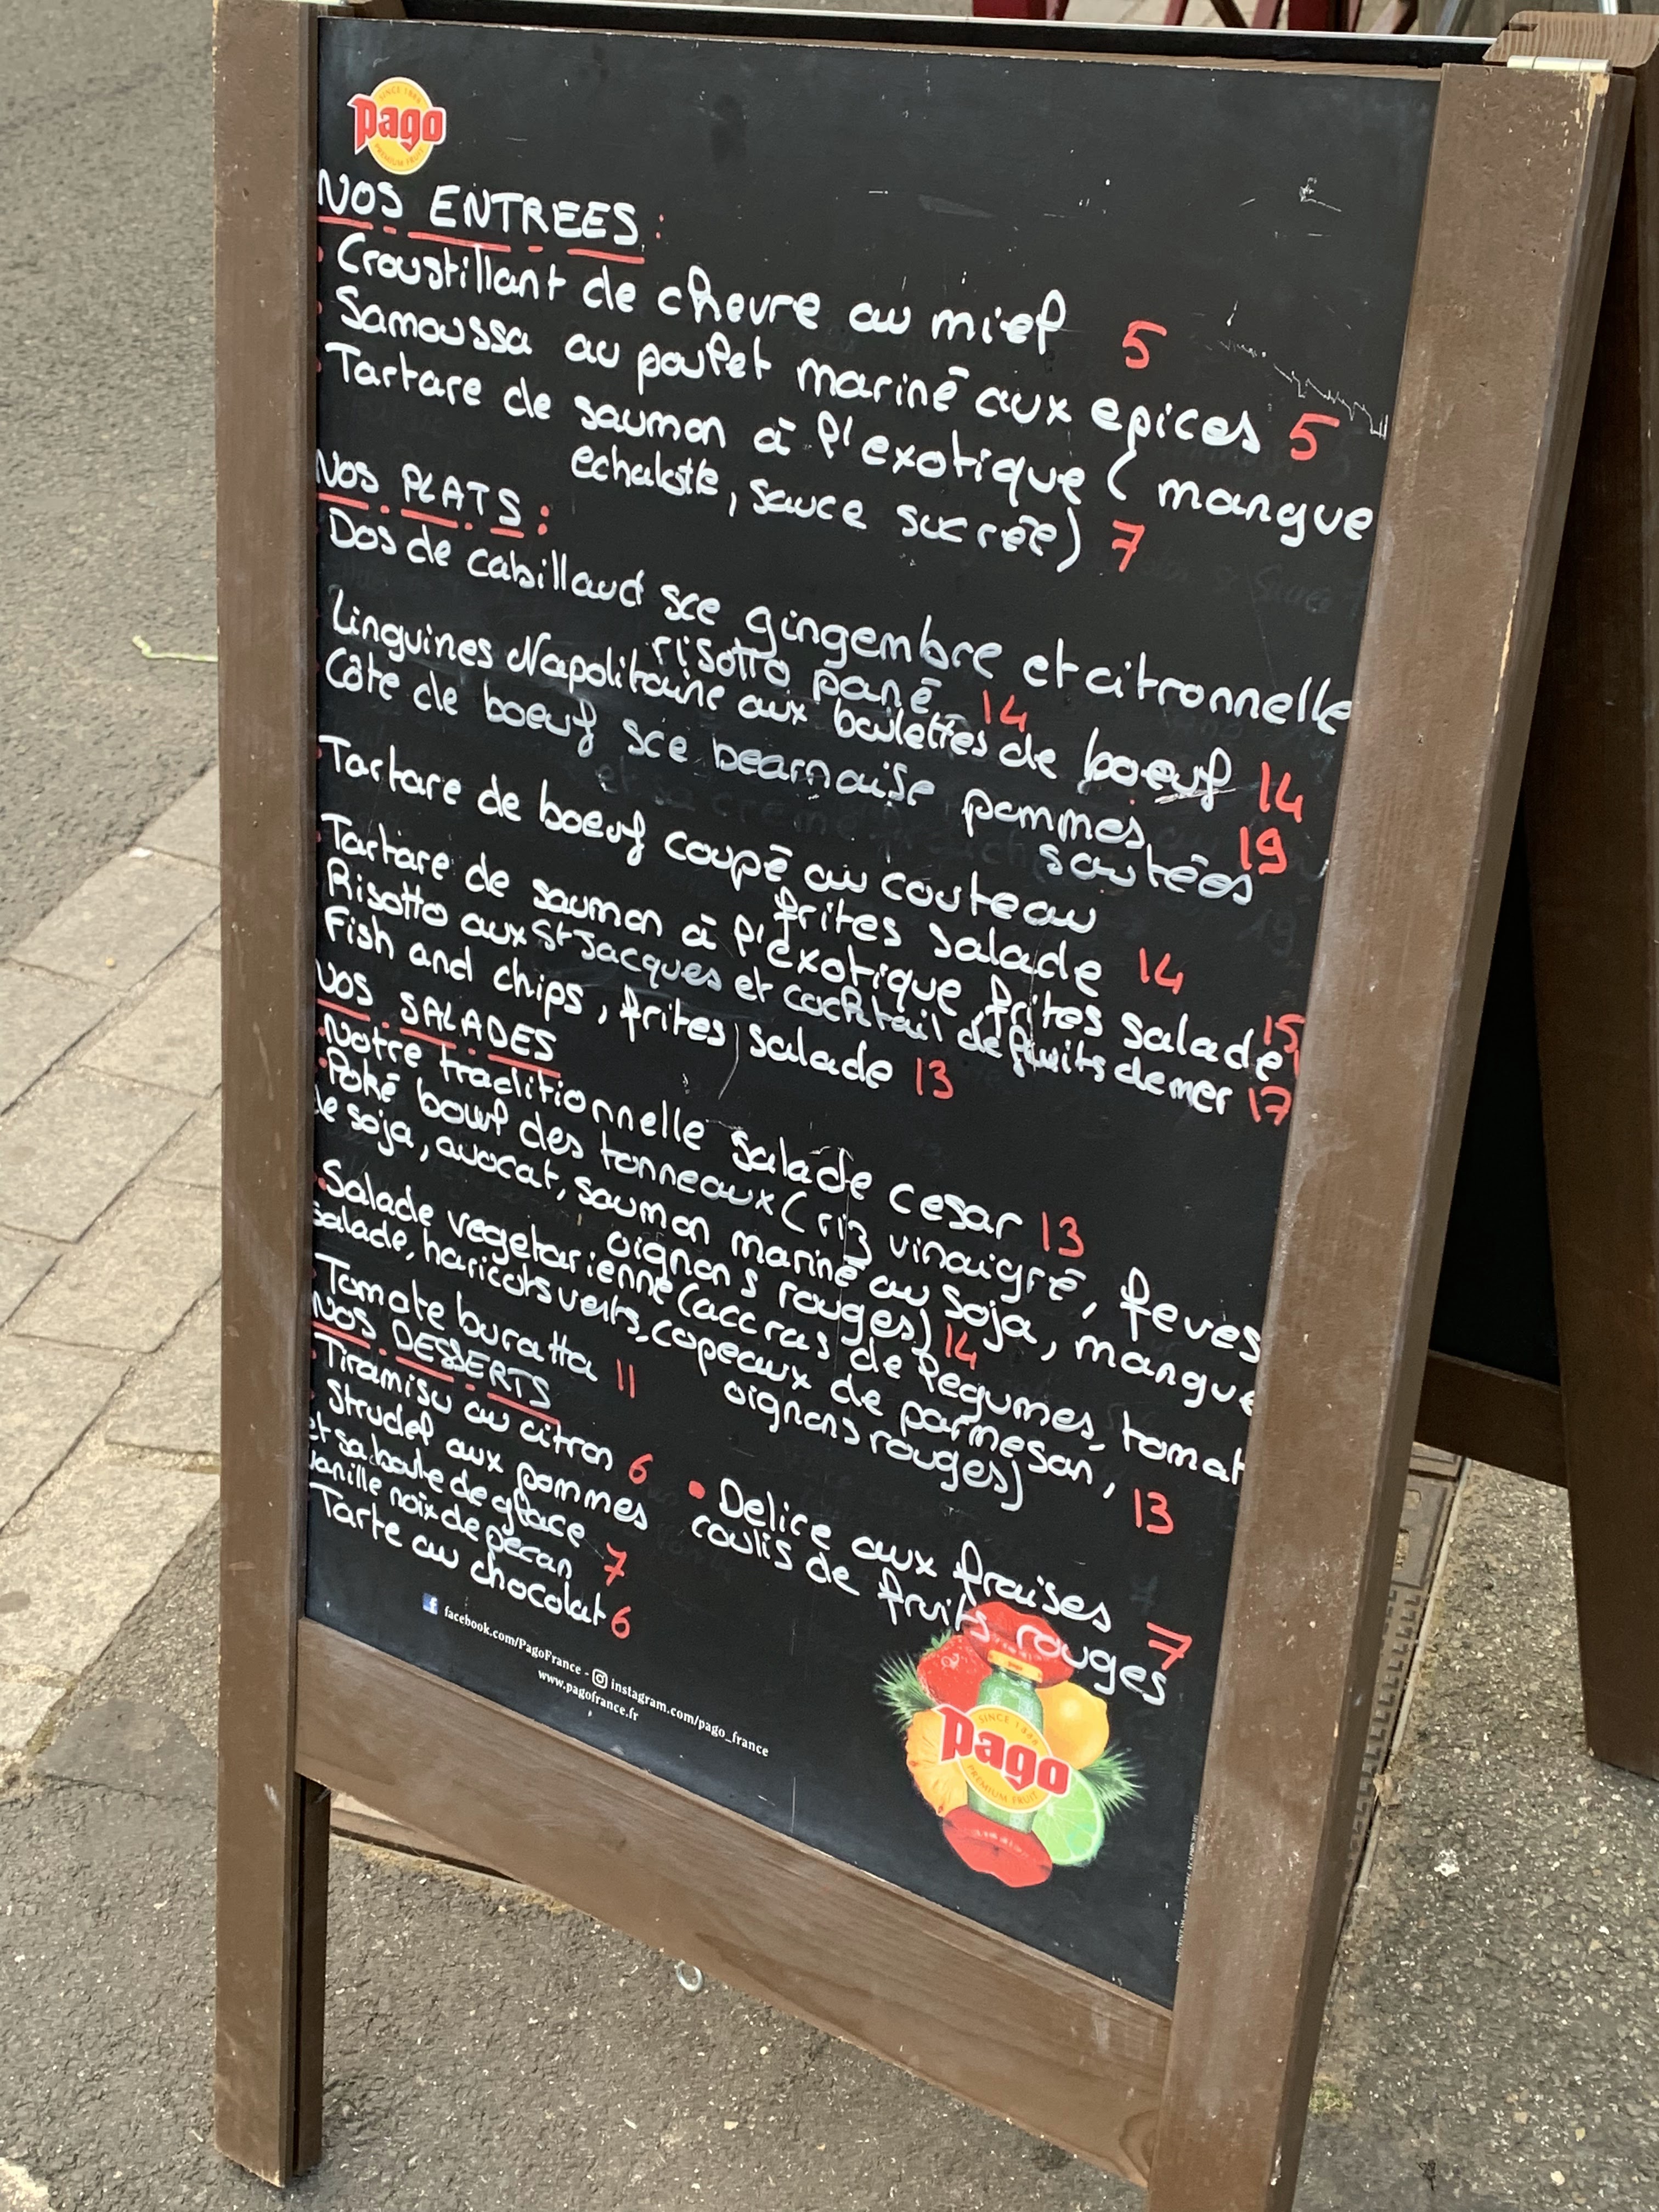 SINCE 1888
Pago
PREMIUM FRUIT
NOS ENTREES :
Croustillant de chevre au miel 5
Samoussa au poulet mariné aux epices 5
Tartare de saumon à l'exotique ( mangue
echalotte, sauce sucrée) 7
NOS PLATS :
Dos de cabillaud sce gingembre et citronnelle
risotto pané 14
Linguines Napolitaine aux boulettes de boeuf 14
Côte de boeuf sce bearnaise pommes 19
sautées
Tartare de boeuf coupé au couteau
frites salade 14
Tartare de saumon à l'exotique frites salade 15
Risotto aux St Jacques et cocktail de fruits de mer 17
Fish and chips, frites, salade 13
NOS SALADES
Notre traditionnelle salade cesar 13
Poké bowl des tonneaux ( riz vinaigré, feves
de soja, avocat, saumon mariné au soja, mangue
oignons rouges) 14
Salade vegetarienne (accras de legumes, tomat
salade, haricots verts, copeaux de parmesan,
oignons rouges) 13
Tomate buratta 11
NOS DESSERTS
Tiramisu au citron 6
Strudel aux pommes
et sa boule de glace
vanille noix de pecan 7
Tarte au chocolat 6
• Delice aux fraises 7
coulis de fruits rouges
facebook.com/PagoFrance - instagram.com/pago_france
www.pagofrance.fr
SINCE 1888
Pago
PREMIUM FRUIT